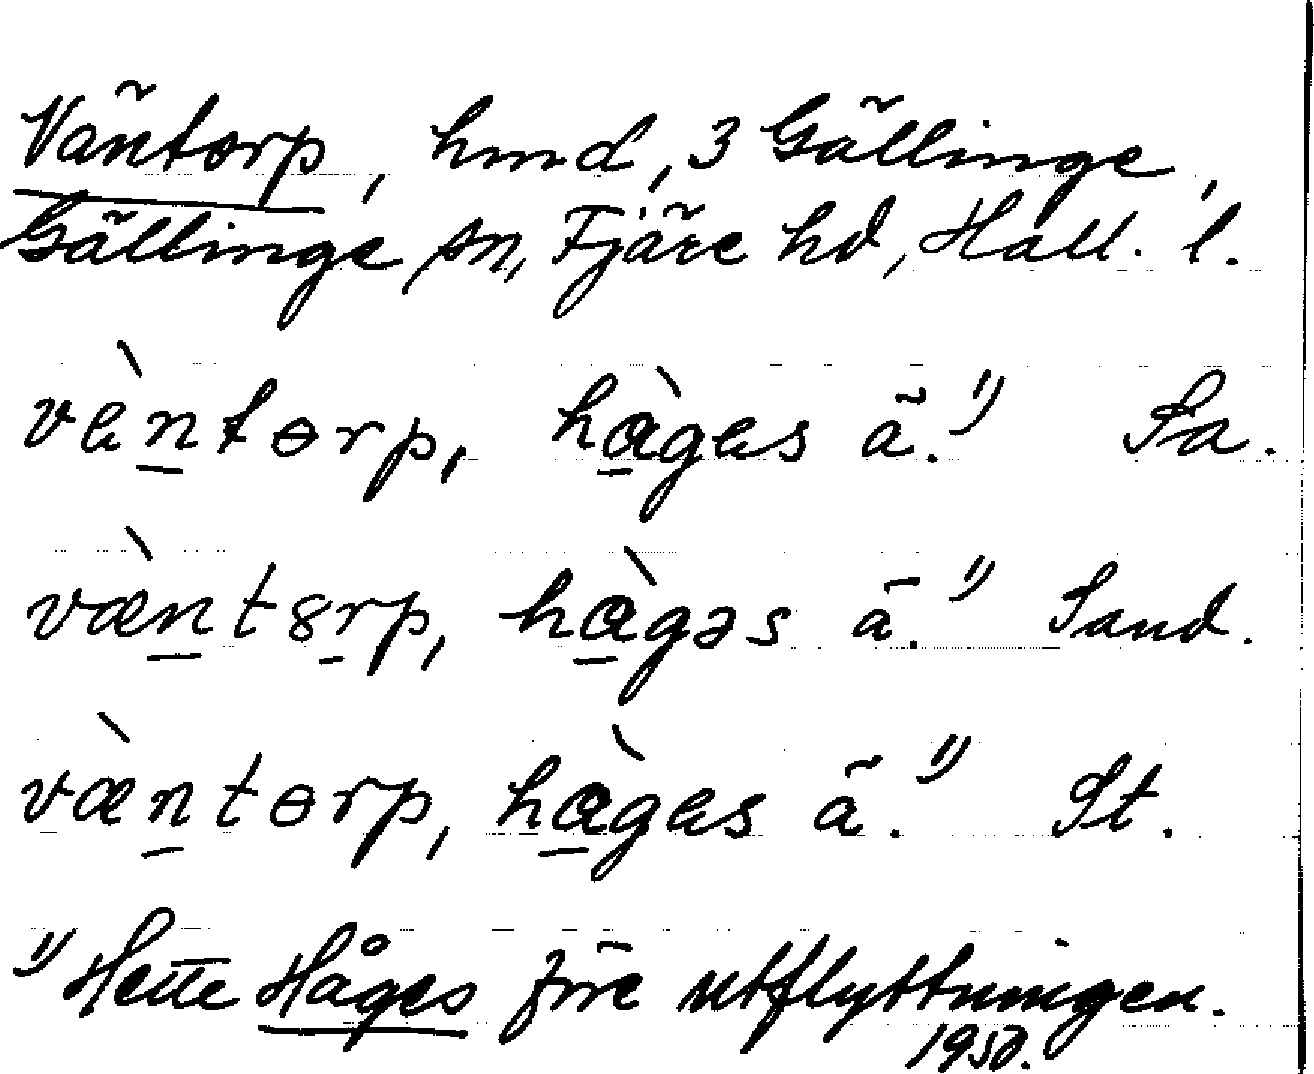 Väntorp, hmd, 3 Gällinge,
Gällinge sn, Fjäre hd, Hall. l.
vèntɵrp, hàges ä.¹⁾ Sa.
væ̀ntȣrp, hàgəs ä.¹⁾ Sand.
væ̀ntɵrp, hàges ä.¹⁾ St.
¹⁾ Hette Håges före utflyttningen.
1950.